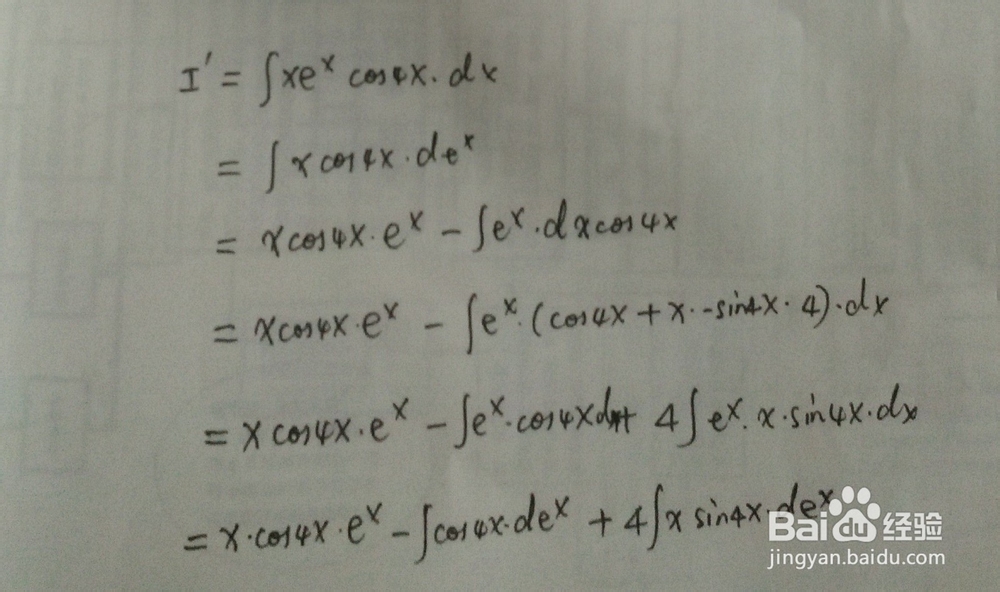 I' = ∫xeˣ cos4x·dx
= ∫x cos4x·deˣ
= xcos4x·eˣ - ∫eˣ·dxcos4x
= xcos4x·eˣ - ∫eˣ·(cos4x + x·-sin4x·4)·dx
= x cos4x·eˣ - ∫eˣ·cos4xdx+ 4∫eˣ·x·sin4x·dx
= x·cos4x·eˣ - ∫cos4x·deˣ + 4∫x sin4x·deˣ
Baidu经验
jingyan.baidu.com